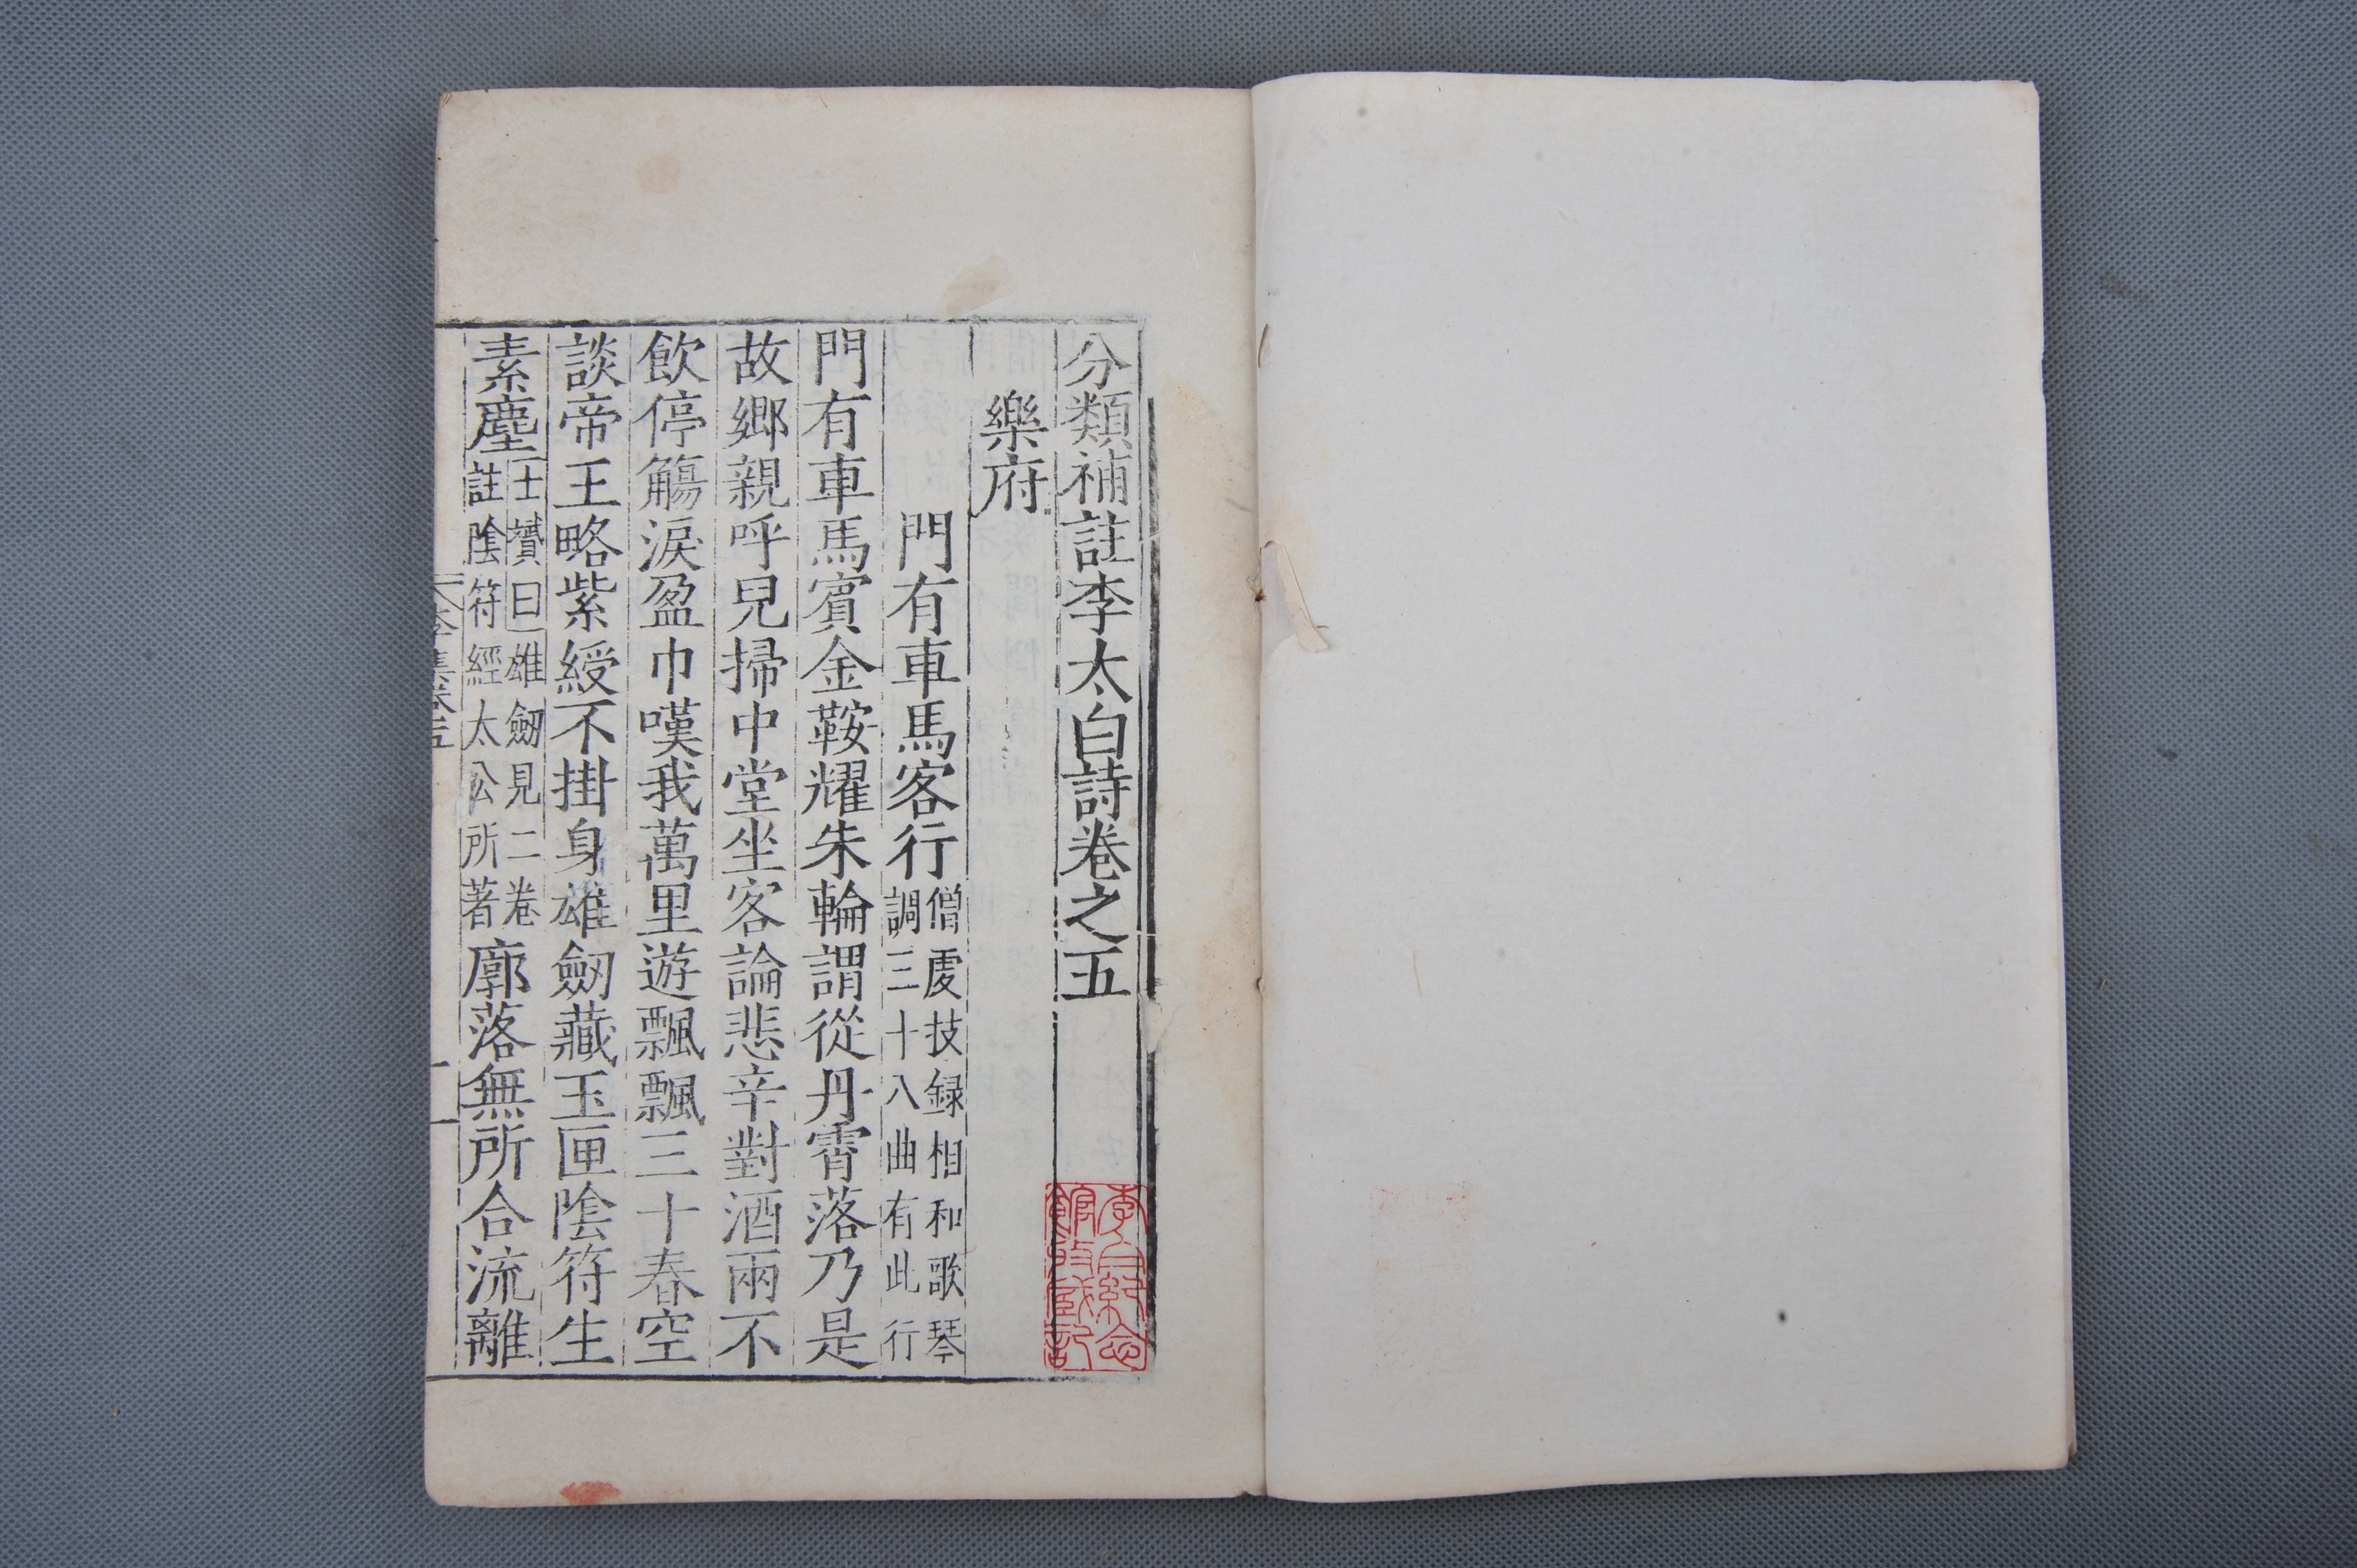 分類補註李太白詩卷之五
樂府
門有車馬客行
僧虔技録相和歌琴
調三十八曲有此行
門有車馬賔金鞍耀朱輪謂從丹霄落乃是
故鄉親呼兒掃中堂坐客論悲辛對酒兩不
飲停觴淚盈巾嘆我萬里遊飄飄三十春空
談帝王略紫綬不掛身雄劒藏玉匣陰符生
素塵
士贇曰雄劒見二卷
註陰符經太公所著
廓落無所合流離
李白紀念
館收藏記